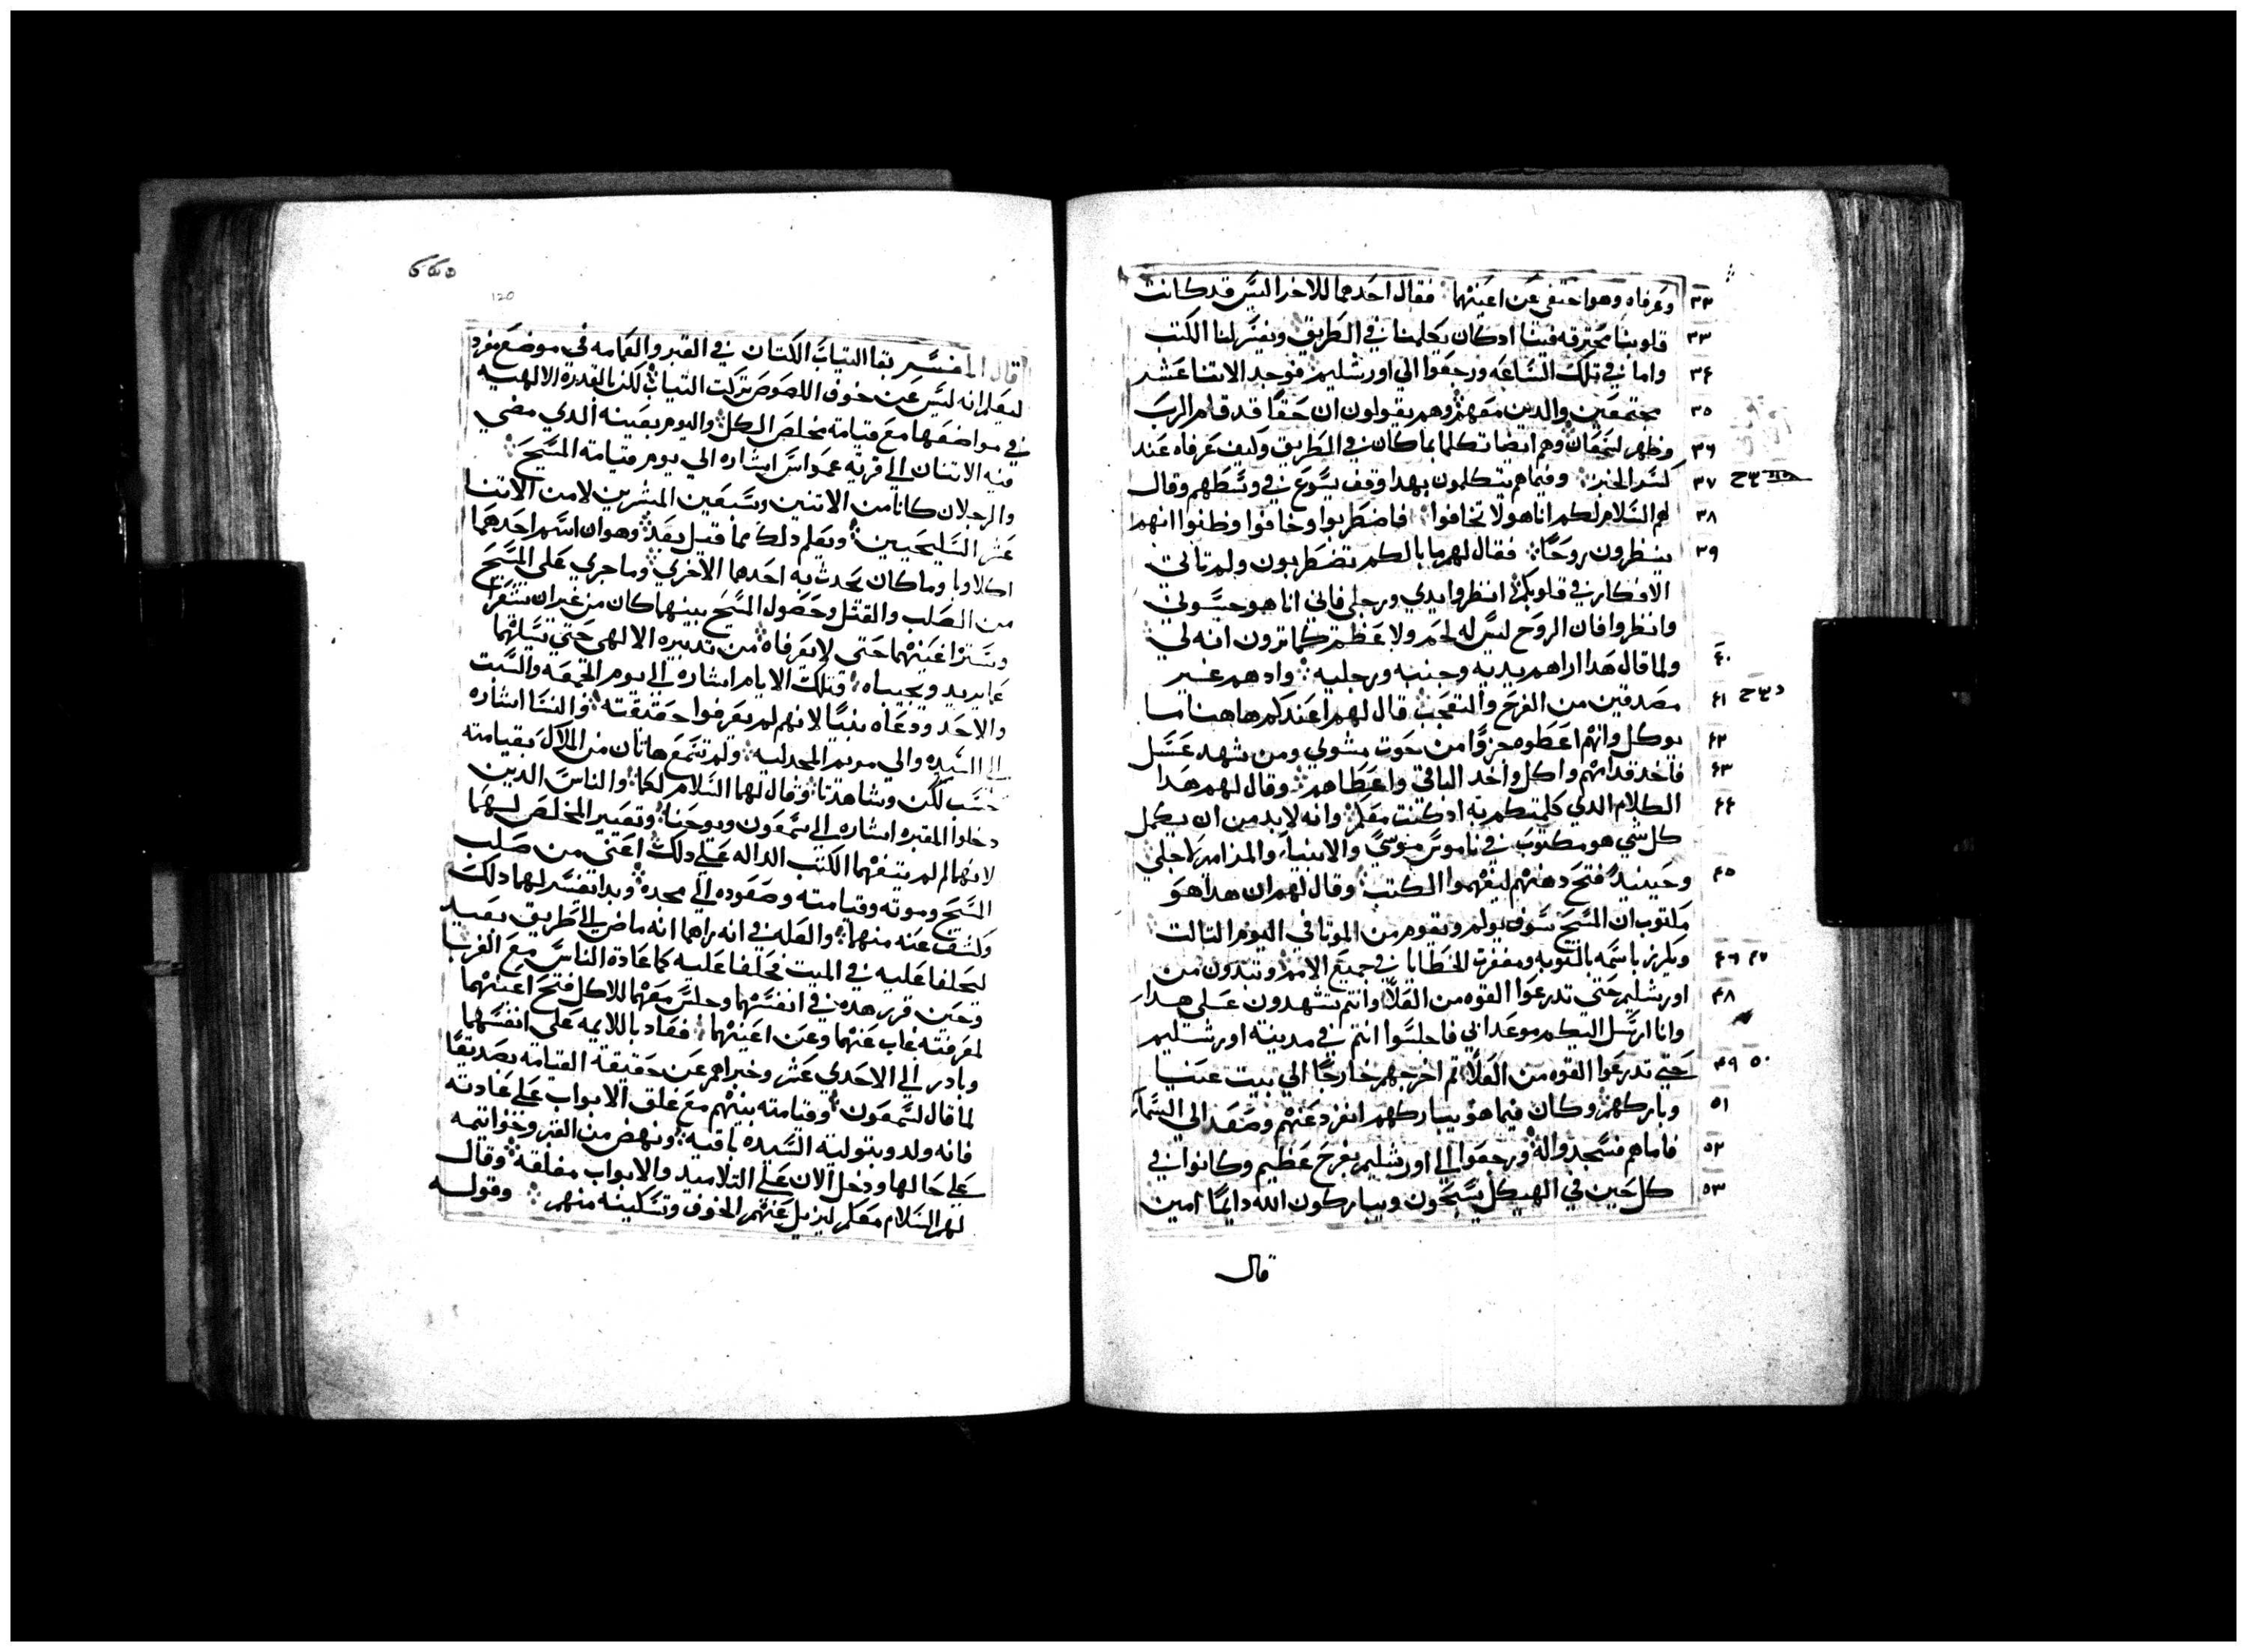 وعرفاه وهو اختفى عن اعينهما فقال احدهما للاخر اليس قد كانت
قلوبنا محترقه فينا اد كان يكلمنا في الطريق ويفسر لنا الكتب
واما في تلك الساعه ورجعوا الي اورشليم فوجد الاتنا عشر
مجتمعين والدين معهم وهم يقولون ان حقا قد قام الرب
وظهر لسمعان وهم ايضا تكلما بما كان في الطريق وكيف عرفاه عند
كسر الخبز وفيما هم يتكلمون بهدا وقف يسوع في وسطهم وقال
لهم السلام لكم انا هو لا تخافوا فاضطربوا وخافوا وظنوا انهم
ينظرون روحا فقال لهم ما بالكم تضطربون ولم تاتي
الافكار في قلوبكم انظروا يدي ورجلي فاني انا هو جسوني
وانظروا فان الروح ليس له لحم ولا عظم كما ترون انه لي
ولما قال هدا اراهم يديه وجنبه ورجليه واد هم غير
مصدقين من الفرح والتعجب قال لهم اعندكم هاهنا ما
يوكل وانهم اعطوه جزوا من حوت مشوي ومن شهد عسل
فاخد قدامهم واكل واخد الباقي واعطاهم وقال لهم هدا
الكلام الدي كلمتكم به اد كنت معكم وانه لابد من ان يكمل
كل شي هو مكتوب في ناموس موسي والانبيا والمزامير لاجلي
وحينيد فتح دهنهم ليفهموا الكتب وقال لهم ان هدا هو
مكتوب ان المسيح سوف يولم ويقوم من الموتا في اليوم التالت
ويكرز باسمه بالتوبه ومغفرت الخطايا في جميع الامم وتبدون من
اورشليم حتي تدرعوا القوه من العلا وانتم تشهدون علي هدا
وانا ارسل اليكم موعد ابي فاجلسوا انتم في مدينه اورشليم
حتي تدرعوا القوه من العلا تم اخرجهم خارجا الي بيت عنيا
وباركهم وكان فيما هو يباركهم انفرد عنهم وصعد الي السما
فاما هم فسجدوا له ورجعوا الي اورشليم بفرح عظيم وكانوا في
كل حين في الهيكل يسبحون ويباركون الله دايما امين
قال
120
قال المفسر بقا التياب الكتان في القبر والعمامه في موضع مفرد
ليعلم انه ليس عن خوف اللصوص تركت التياب لكن بالقدره الالهيه
في مواضعها مع قيامة مخلص الكل واليوم بعينه الدي مضي
فيه الاتنان الي قرية عمواس اشاره الي يوم قيامة المسيح
والرجلان كانا من الاتنين وسبعين المبشرين لا من الاتنا
عشر السليحيين ويعلم دلك مما قيل بعد وهو ان اسم احدهما
اكلاوبا وما كان يحدث به احدهما الاخري وما جري علي المسيح
من الصلب والقتل وحصول المسيح بينهما كان من غير ان يشعرا
وستر اعينهما حتي لا يعرفاه من تدبيره الالهي حتي تسلهما
عما يريد ويجيباه وتلك الايام اشاره الي يوم الجمعه والسبت
والاحد ودعاه نبيا لانهم لم يعرفوا حقيقته والنسا اشاره
الي السيده والي مريم المجدليه ولم تسمع هاتان من الملاك بقيامته
حسب لكن وشاهدتا وقال لهما السلام لكما والناس الدين
دخلوا المقبره اشاره الي شمعون ويوحنا وتعيير المخلص لهما
لانهما لم يتفهما الكتب الداله علي دلك اعني من صلب
المسيح وموته وقيامته وصعوده الي مجده وبدا يفسر لهما دلك
وكشف عنه منهما والعله في انه راهما انه ماض الي طريق بعيد
ليحلفا عليه في المبيت فحلفا عليه كما عادة الناس مع الغربا
وحين قرر هده في انفسهما وجلس معهما للاكل فتح اعينهما
لمعرفته غاب عنهما وعن اعينهما فعاد باللايمه علي انفسهما
وبادر الي الاحدي عشر وخبراهم عن حقيقة القيامه تصديقا
لما قال لشمعون وقيامته بينهم مع غلق الابواب علي عادته
فانه ولد وبتولية السيده باقيه ونهض من القبر وخواتمه
علي حالها ودخل الان علي التلاميد والابواب مغلقه وقال
لهم السلام معكم ليزيل عنهم الخوف وتسكينه منهم وقوله